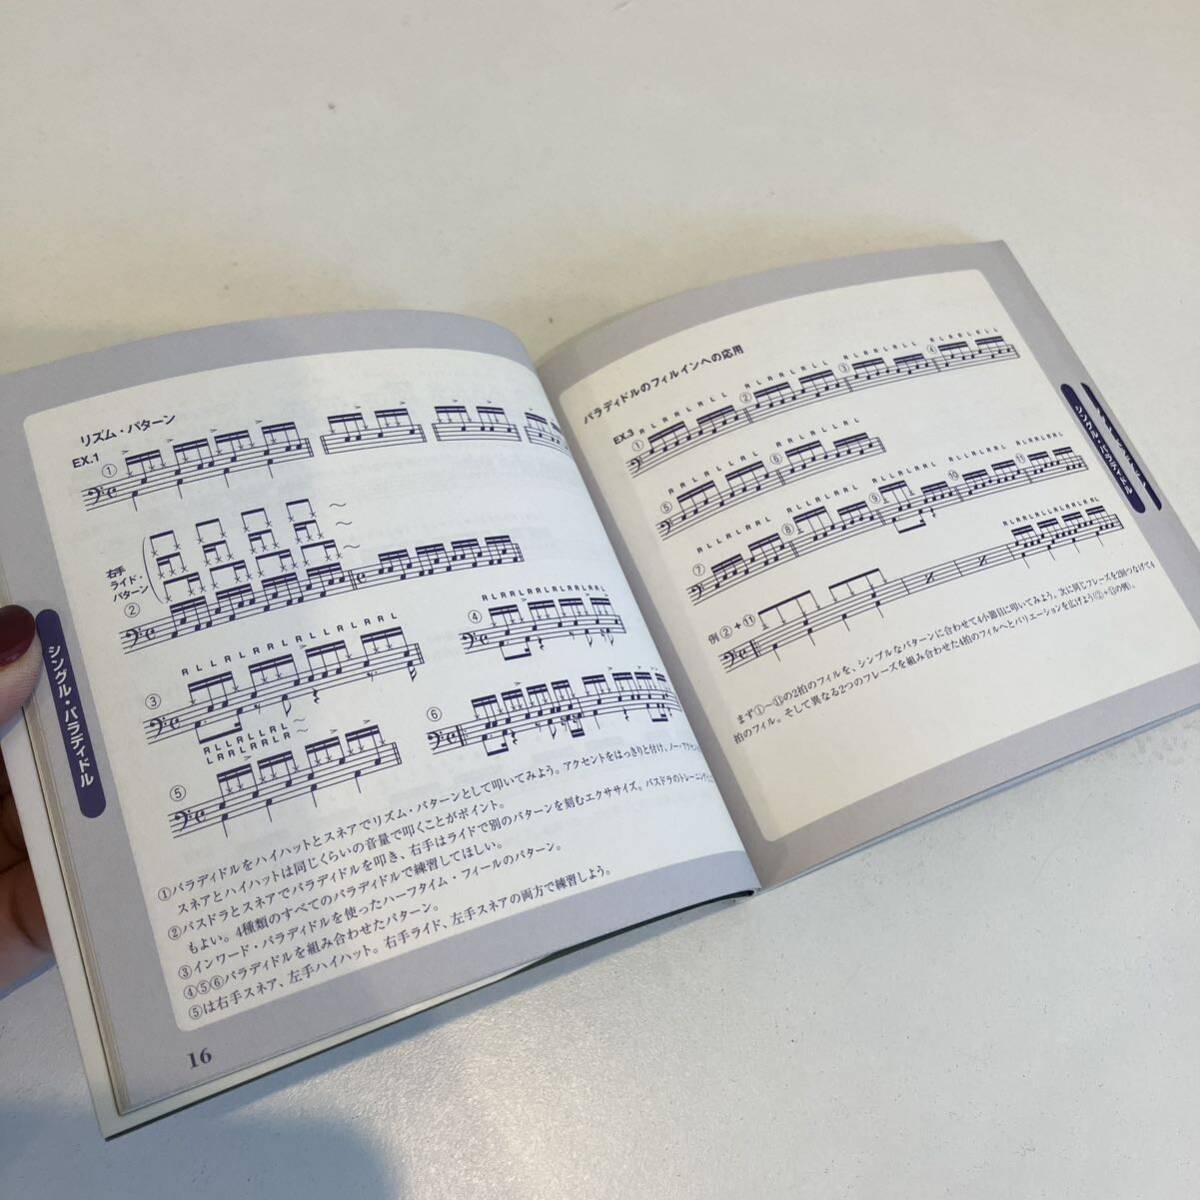 リズム・パターン
EX.1
①
右手
ライド・
パターン
②
R L L R L R R L L R L L R L R R L
③
④
RLRRLRRLRRLRLRRL
⑤
RLRLLRL
⑥
①パラディドルをハイハットとスネアでリズム・パターンとして叩いてみよう。アクセントをはっきりと付け、ノー・アクセント
スネアとハイハットは同じくらいの音量で叩くことがポイント。
②バスドラとスネアでパラディドルを叩き、右手はライドで別のパターンを刻むエクササイズ。バスドラのトレーニング
もよい。4種類のすべてのパラディドルで練習してほしい。
③インワード・パラディドルを使ったハーフタイム・フィールのパターン。
④⑤⑥パラディドルを組み合わせたパターン。
⑤は右手スネア、左手ハイハット。右手ライド、左手スネアの両方で練習しよう。
シングル・パラディドル
16
パラディドルのフィルインへの応用
EX.3
①
②
③
④
⑤
⑥
⑦
⑧
⑨
⑩
⑪
例②+⑪
まず①〜⑪の2拍のフィルを、シンプルなパターンに合わせて4小節目に叩いてみよう。次に同じフレーズを2回つなげて4
拍のフィル。そして異なる2つのフレーズを組み合わせた4拍のフィルへとバリエーションを広げよう(②+⑪の例)。
シングル・パラディドル